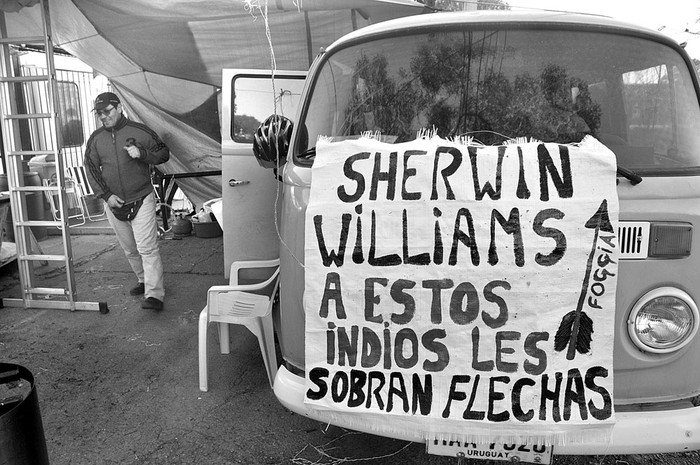 SHERWIN
WILLIAMS
A ESTOS
INDIOS LES
SOBRAN FLECHAS
FOGGIA
URUGUAY